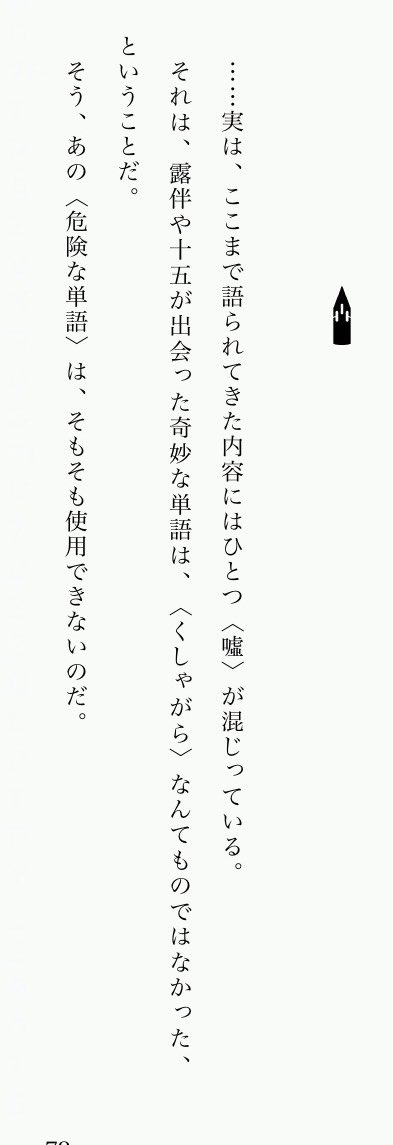 ……実は、ここまで語られてきた内容にはひとつ〈嘘〉が混じっている。
それは、露伴や十五が出会った奇妙な単語は、〈くしゃがら〉なんてものではなかった、
ということだ。
そう、あの〈危険な単語〉は、そもそも使用できないのだ。